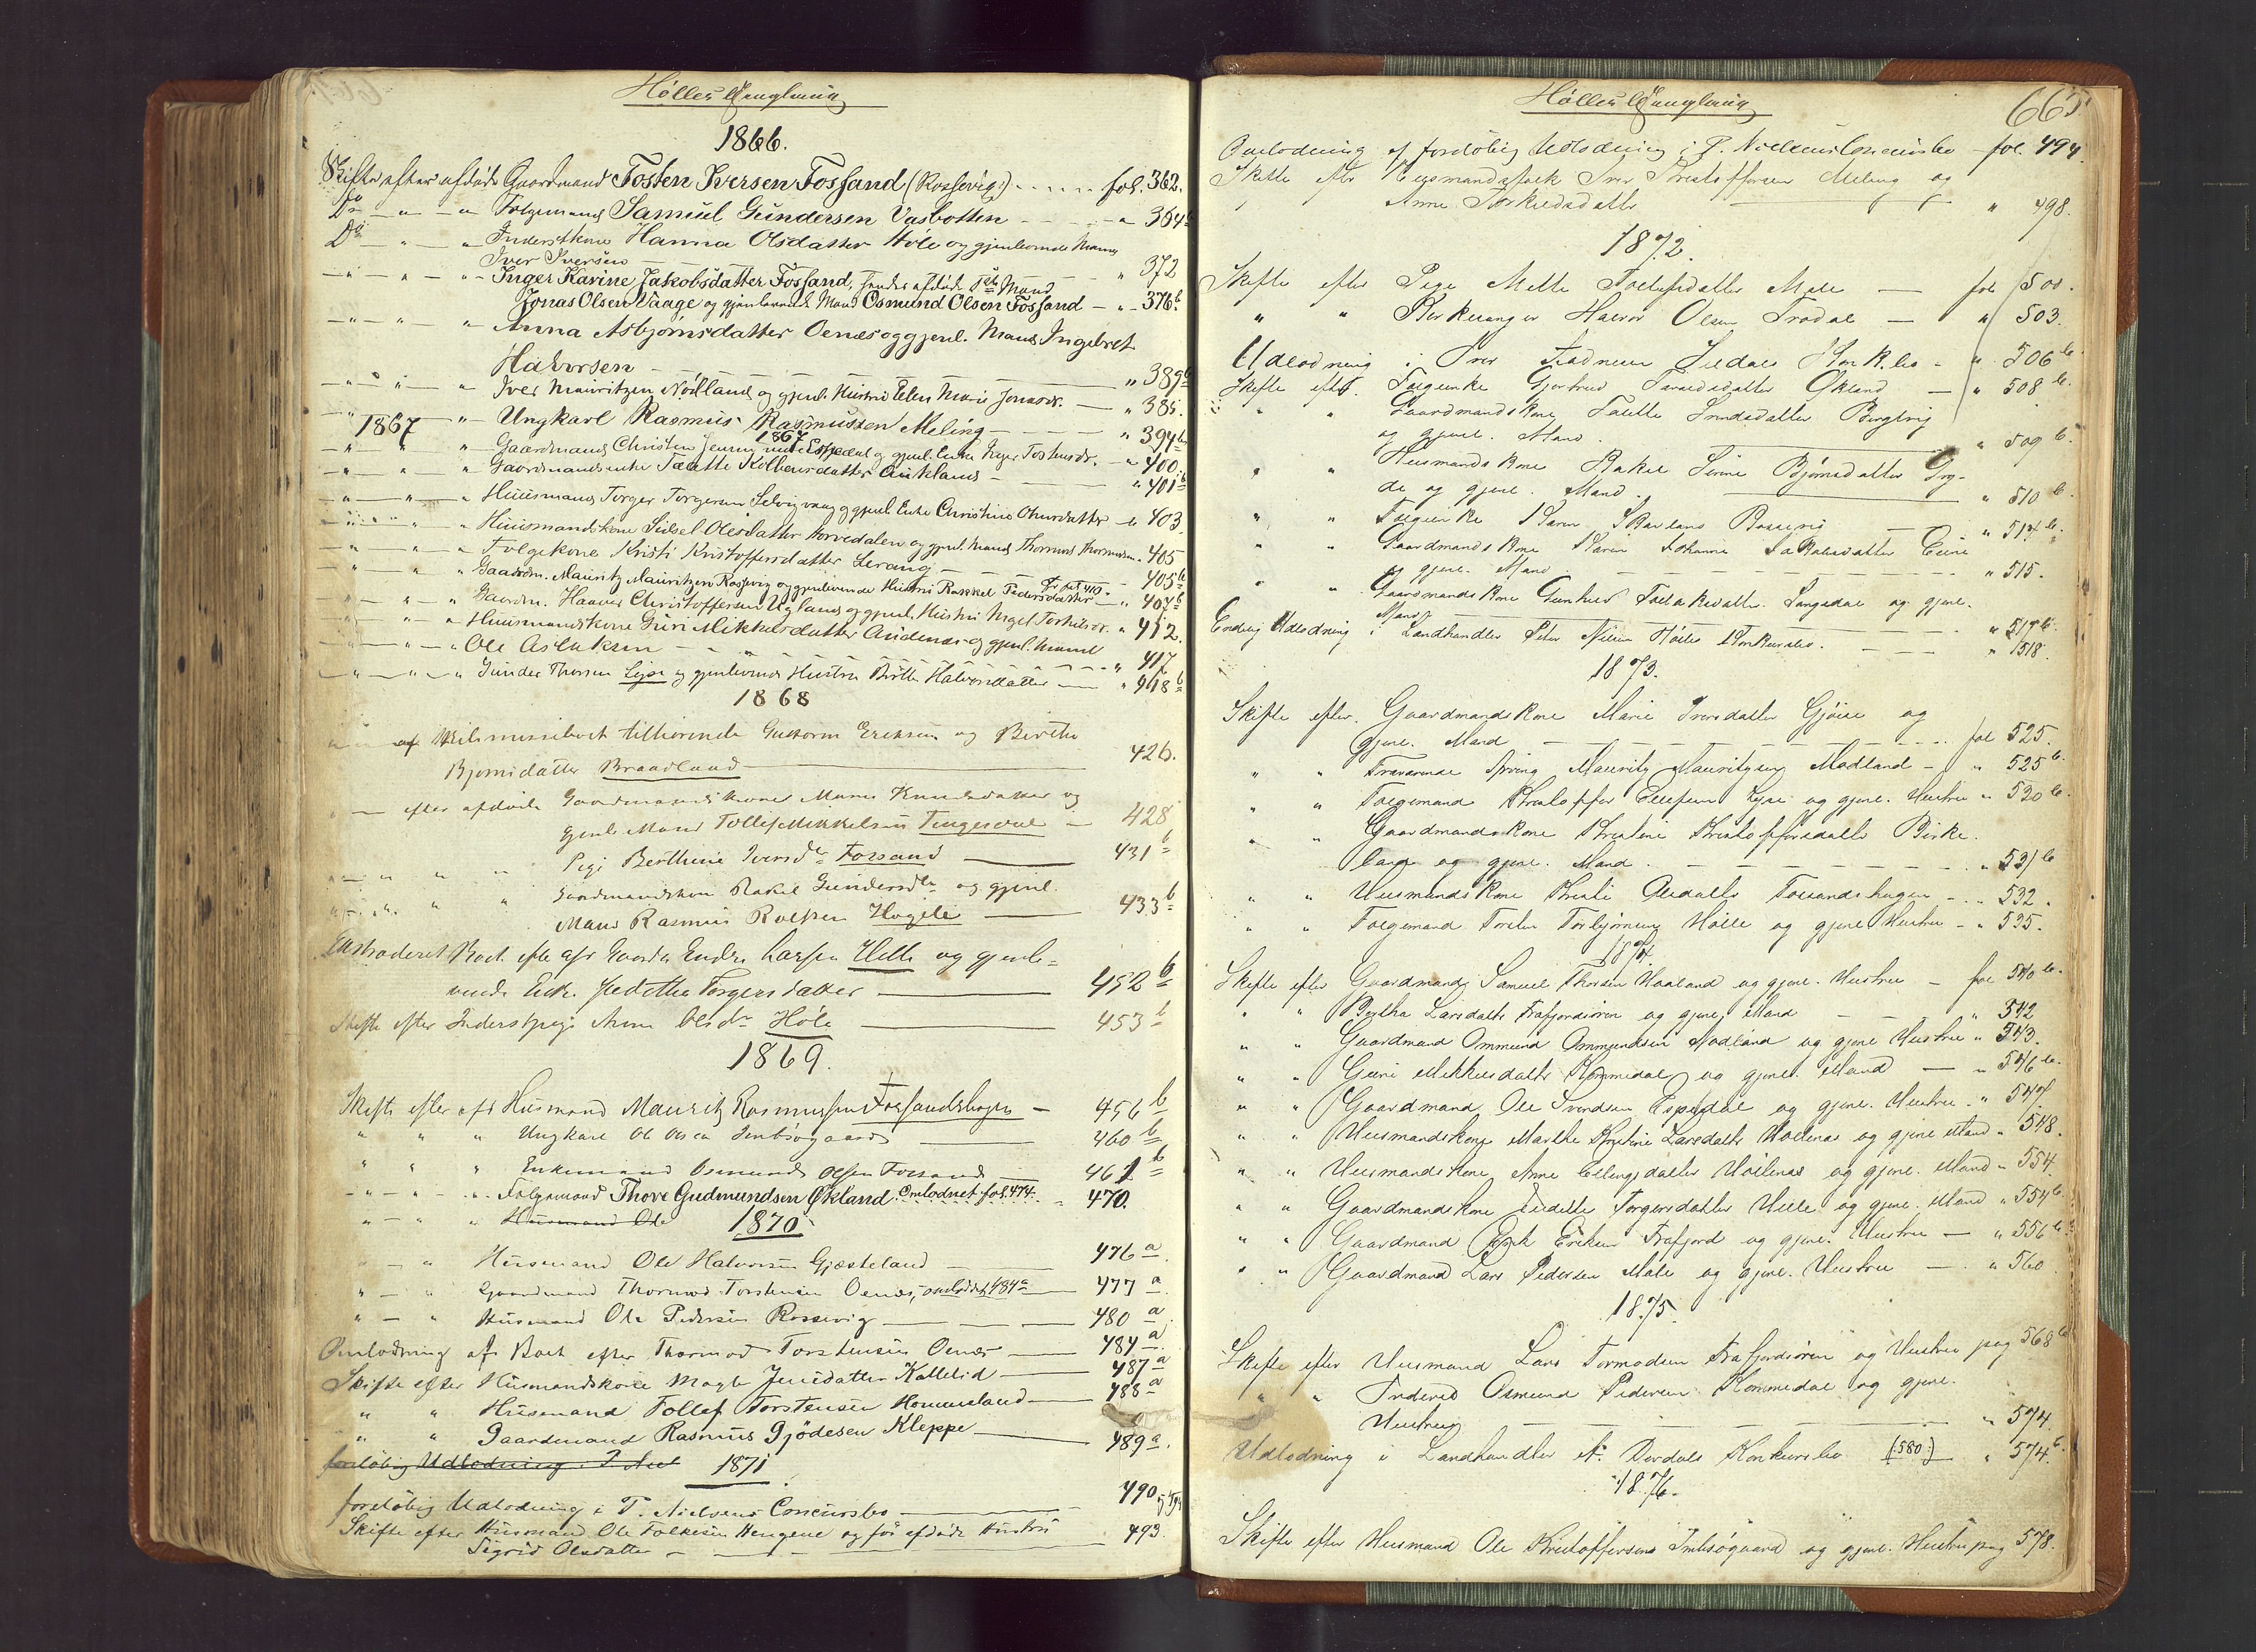 Hølles
1866.
Skifte efter afdøde Gaardmand Tosten Iversen Fossand (Rossevig:) fol. 362.
Do " " Folgemand Samuel Gundersen Vasbotten " 364b
Do " " Inderstkone Hanna Olsdatter Høle og gjenlevende Mand
Iver Iversen " 372
" " " Inger Karine Jakobsdatter Fossand, hendes afdøde Mand
Jonas Olsen Vaage og gjenlevende Mand Osmund Olsen Fossand " 376b
" " " Anna Asbjørnsdatter Oenæs og gjenl. Mand Ingebret
Halvorsen " 389b
" " " Iver Mauritzen Nødland og gjenl. Hustru Elen Marie Jonasdr. " 385.
1867 " Ungkarl Rasmus Rasmussen Meling " 394b
1867
" " " Gaardmand Christen Jensen Espedal og gjenl. Enke Inger Tostensdr. " 400
" " " Gaardmandsenke Taatte Kolbensdatter Aukland " 401b
" " " Huusmand Torger Torgersen Selvigvaag og gjenl. Enke Christine " 403
" " " Huusmandskone Sidsel Olesdatter Horvedalen og gjenl. Mand Thormod Thormodsen " 405
" " " Folgekone Kristi Kristoffersdatter Lerang " 405b
" " " Gaardm. Mauritz Mauritzen Rossevig og gjenlevende Hustru Rakkel Pedersdatter " 407b
" " " Gaardm. Haaver Christoffersen Ugland og gjenl. Hustru Inger Torkilsdr. " 412.
" " " Huusmandskone Guri Mikkelsdatter Audenæs og gjenl. Mand
Ole Aslaksen " 417
" " " Gunder Thorsen Lyse og gjenlevende Hustru Birthe Halvorsdatter " 418b
1868
tilhørende Guttorm Eriksen og Berthe
Bjørnsdatter Braadland 426.
" efter afdøde Gaardmandskone Maren Knudsdatter og
gjenl. Mand Tollef Mikkelsen 428
" " " Pige Berthine Iversdr Fossand 431b
" " " Gaardmandskone Rakel Gundersdr og gjenl.
Mand Rasmus Rolfsen Høgelie 433b
Extraderet Boet efter afd Gaardm. Endre Larsen Helle og gjenle=
vende Enke Torgersdatter 452b
Skifte efter Inderstpige Anna Olsdr Høle 453b
1869.
Skifte efter afd Husmand Mauritz Rasmussen Fossandshagen 456b
" " " Ungkarl Ole Olsen Imbsøgaard 460b
" " " Enkemand Osmund Olsen Fossand 461b
" " " Folgemand Thore Gudmundsen Økland. Omlodnet fol. 474. 470.
" " " Husmand Ole
1870
" " Husmand Ole Halvorsen Gjæsteland 476a
" " Gaardmand Thormod Torstensen Oenæs, omloddet 484a 477a
" " Husmand Ole Pedersen Rossevig 480a
Omlodning af Boet efter Thormod Torstensen Oenæs 484a
Skifte efter Husmandskone Magla Jensdatter Kallelid 487a
" " Husmand Tollef Torstensen Hommeland 488a
" " Gaardmand Rasmus Gjødesen Kleppe 489a.
foreløbig Udlodning i P. Niel
1871
foreløbig Udlodning i P. Nielsens Concursbo 490
Skifte efter Husmand Ole Hengene og før afdøde Hustru
Sigrid Olsdatter 493.
Hølles
665
Omlodning af foreløbig Udlodning i P. Nielsens Concursbo fol. 494.
Skifte efter Huusmandsfolk Iver Kristoffersen Meling og
Anne Torkildsdatter " 498.
1872.
Skifte efter Pige Mette Tollefsdatter Mele fol 501.
" " Halvor Olsen Frødal " 503.
Udlodning i Iver Konk.bo " 506b
Skifte efter. Folgeenke Gjertrud Økland " 508b.
" " Gaardmandskone Taletta Bergevig
og gjenl. Mand. " 509b.
" " Husmandskone Rakel Serine Bjørnsdatter Gry-
de og gjenl. Mand. " 510b.
" " Folgeenke Karen Rossevig " 514b.
" " Gaardmandskone Karen Johanne Jakobsdatter Eiane
og gjenl. Mand " 515.
" " Gaardmandskone Gunhild Songedal og gjenl.
Mand " 517b.
Endelig Udlodning i Landhandler Peter Nilsen Høles Konkursbo. " 518.
1873.
Skifte efter. Gaardmandskone Marie Iversdatter Gjøse og
gjenl. Mand fol 525.
" " Fraværende Mauritz Mauritzsen Modland " 525b.
" " Folgemand Kristoffer Ellefsen Lyse og gjenl. Hustru " 530b.
" " Gaardmandskone Kristine Kristoffersdatter Birke
land og gjenl. Mand. " 531b
" " Husmandskone Kristi Olsdatter Fossandshagen " 532.
" " Folgemand Torsten Torbjørnsen Hølle og gjenl. Hustru " 535.
1874.
Skifte efter Gaardmand Samuel Thorsen Haaland og gjenl. Hustru fol 540b.
" " Bertha Larsdatter Frafjordøren og gjenl. Mand " 542
" " Gaardmand Ommund Ommundsen Modland og gjenl Hustru " 543.
" " Guri Mikkelsdatter Kommedal og gjenl. Mand " 546b.
" " Gaardmand Ole Svendsen Espedal og gjenl. Hustru " 547.
" " Husmandskone Marthe Kristine Larsdatter Høllenæs og gjenl Mand " 548.
" " Husmandskone Anne Ellingsdatter Høllenæs og gjenl. Mand " 554.
" " Gaardmandskone Torgersdatter Helle og gjenl. Mand " 554b.
" " Gaardmand Erik Eriksen Frafjord og gjenl. Hustru " 556b.
" " Gaardmand Lars Pedersen Mele og gjenl. Hustru " 560
1875.
Skifte efter Husmand Lars Tormodsen Frafjordøren og Hustru pag 568b
" " Inderst Osmund Pedersen Kommedal og gjenl.
Hustru " 574.
Udlodning i Landhandler A. Dordals Konkursbo (:580:) " 574b.
1876.
Skifte efter Husmand Ole Kristoffersen Imbsøgaard og gjenl. Hustru pag 578.